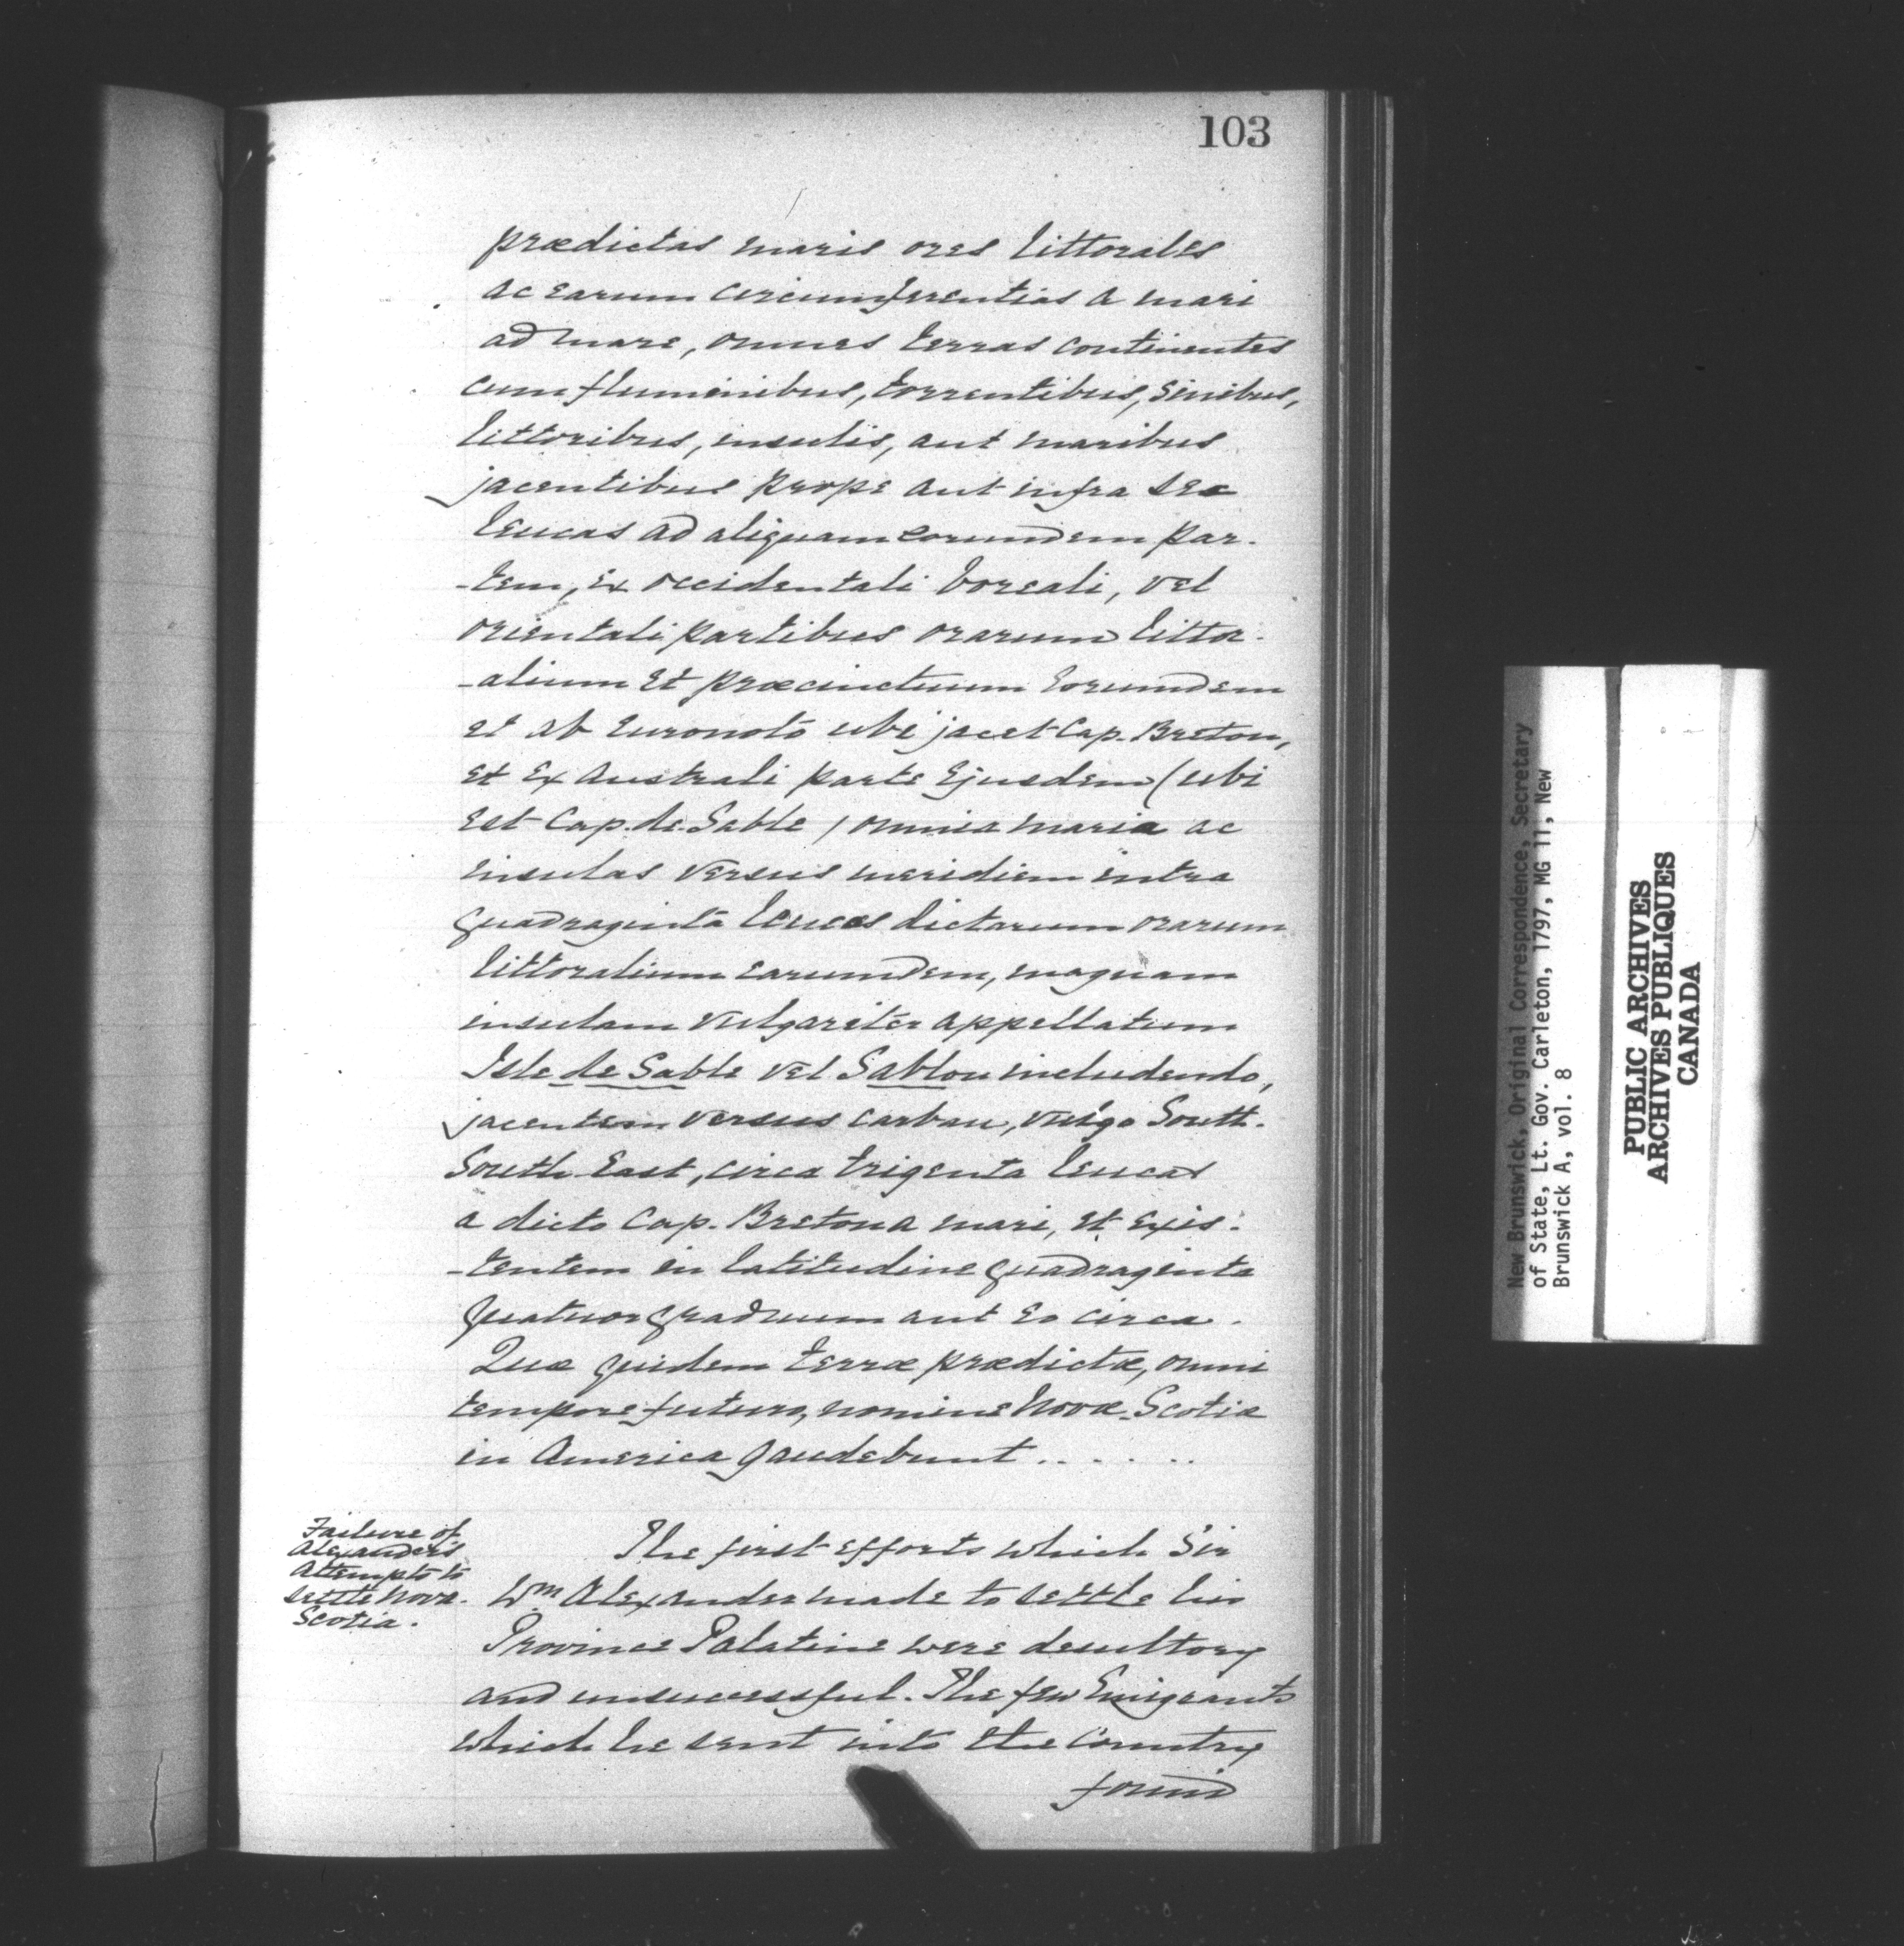 103
prædictas maris ores littorales
ac earum circumferentias a mari
ad mare, omnes terras continentes
cum fluminibus, torrentibus, sinibus,
littoribus, insulis, aut maribus
jacentibus prope aut infra sex
leucas ad aliquam eorumdem par-
-tem, ex occidentali boreali, vel
orientali partibus orarum litto-
-alium et præcinctuum eorumdem
et ab euronoto ubi jacet Cap. Breton,
et ex australi parte ejusdem (ubi
est Cap. de Sable) omnia maria ac
insulas versus meridiem intra
quadraginta leucas dictarum orarum
littoralium earumdem, magnam
insulam vulgariter appellatum
Isle de Sable vel Sablon includendo,
jacentem versus carban, vulgo South-
South East, circa triginta leucas
a dicto Cap. Breton a mari, et exis-
-tentem in latitudine quadraginta
quatuor graduum aut eo circa.
Quæ quidem terræ prædictæ, omni
tempore futuro, nomine Novæ Scotiæ
in America gaudebunt......
Failure of
Alexander's
Attempts to
settle Nova-
Scotia.
The first efforts which Sir
Wm Alexander made to settle his
Province Palatine were desultory
and unsuccessful. The few Emigrants
which he sent into the Country
found
New Brunswick, Original Correspondence, Secretary
of State, Lt. Gov. Carleton, 1797, MG 11, New
Brunswick A, vol. 8
PUBLIC ARCHIVES
ARCHIVES PUBLIQUES
CANADA